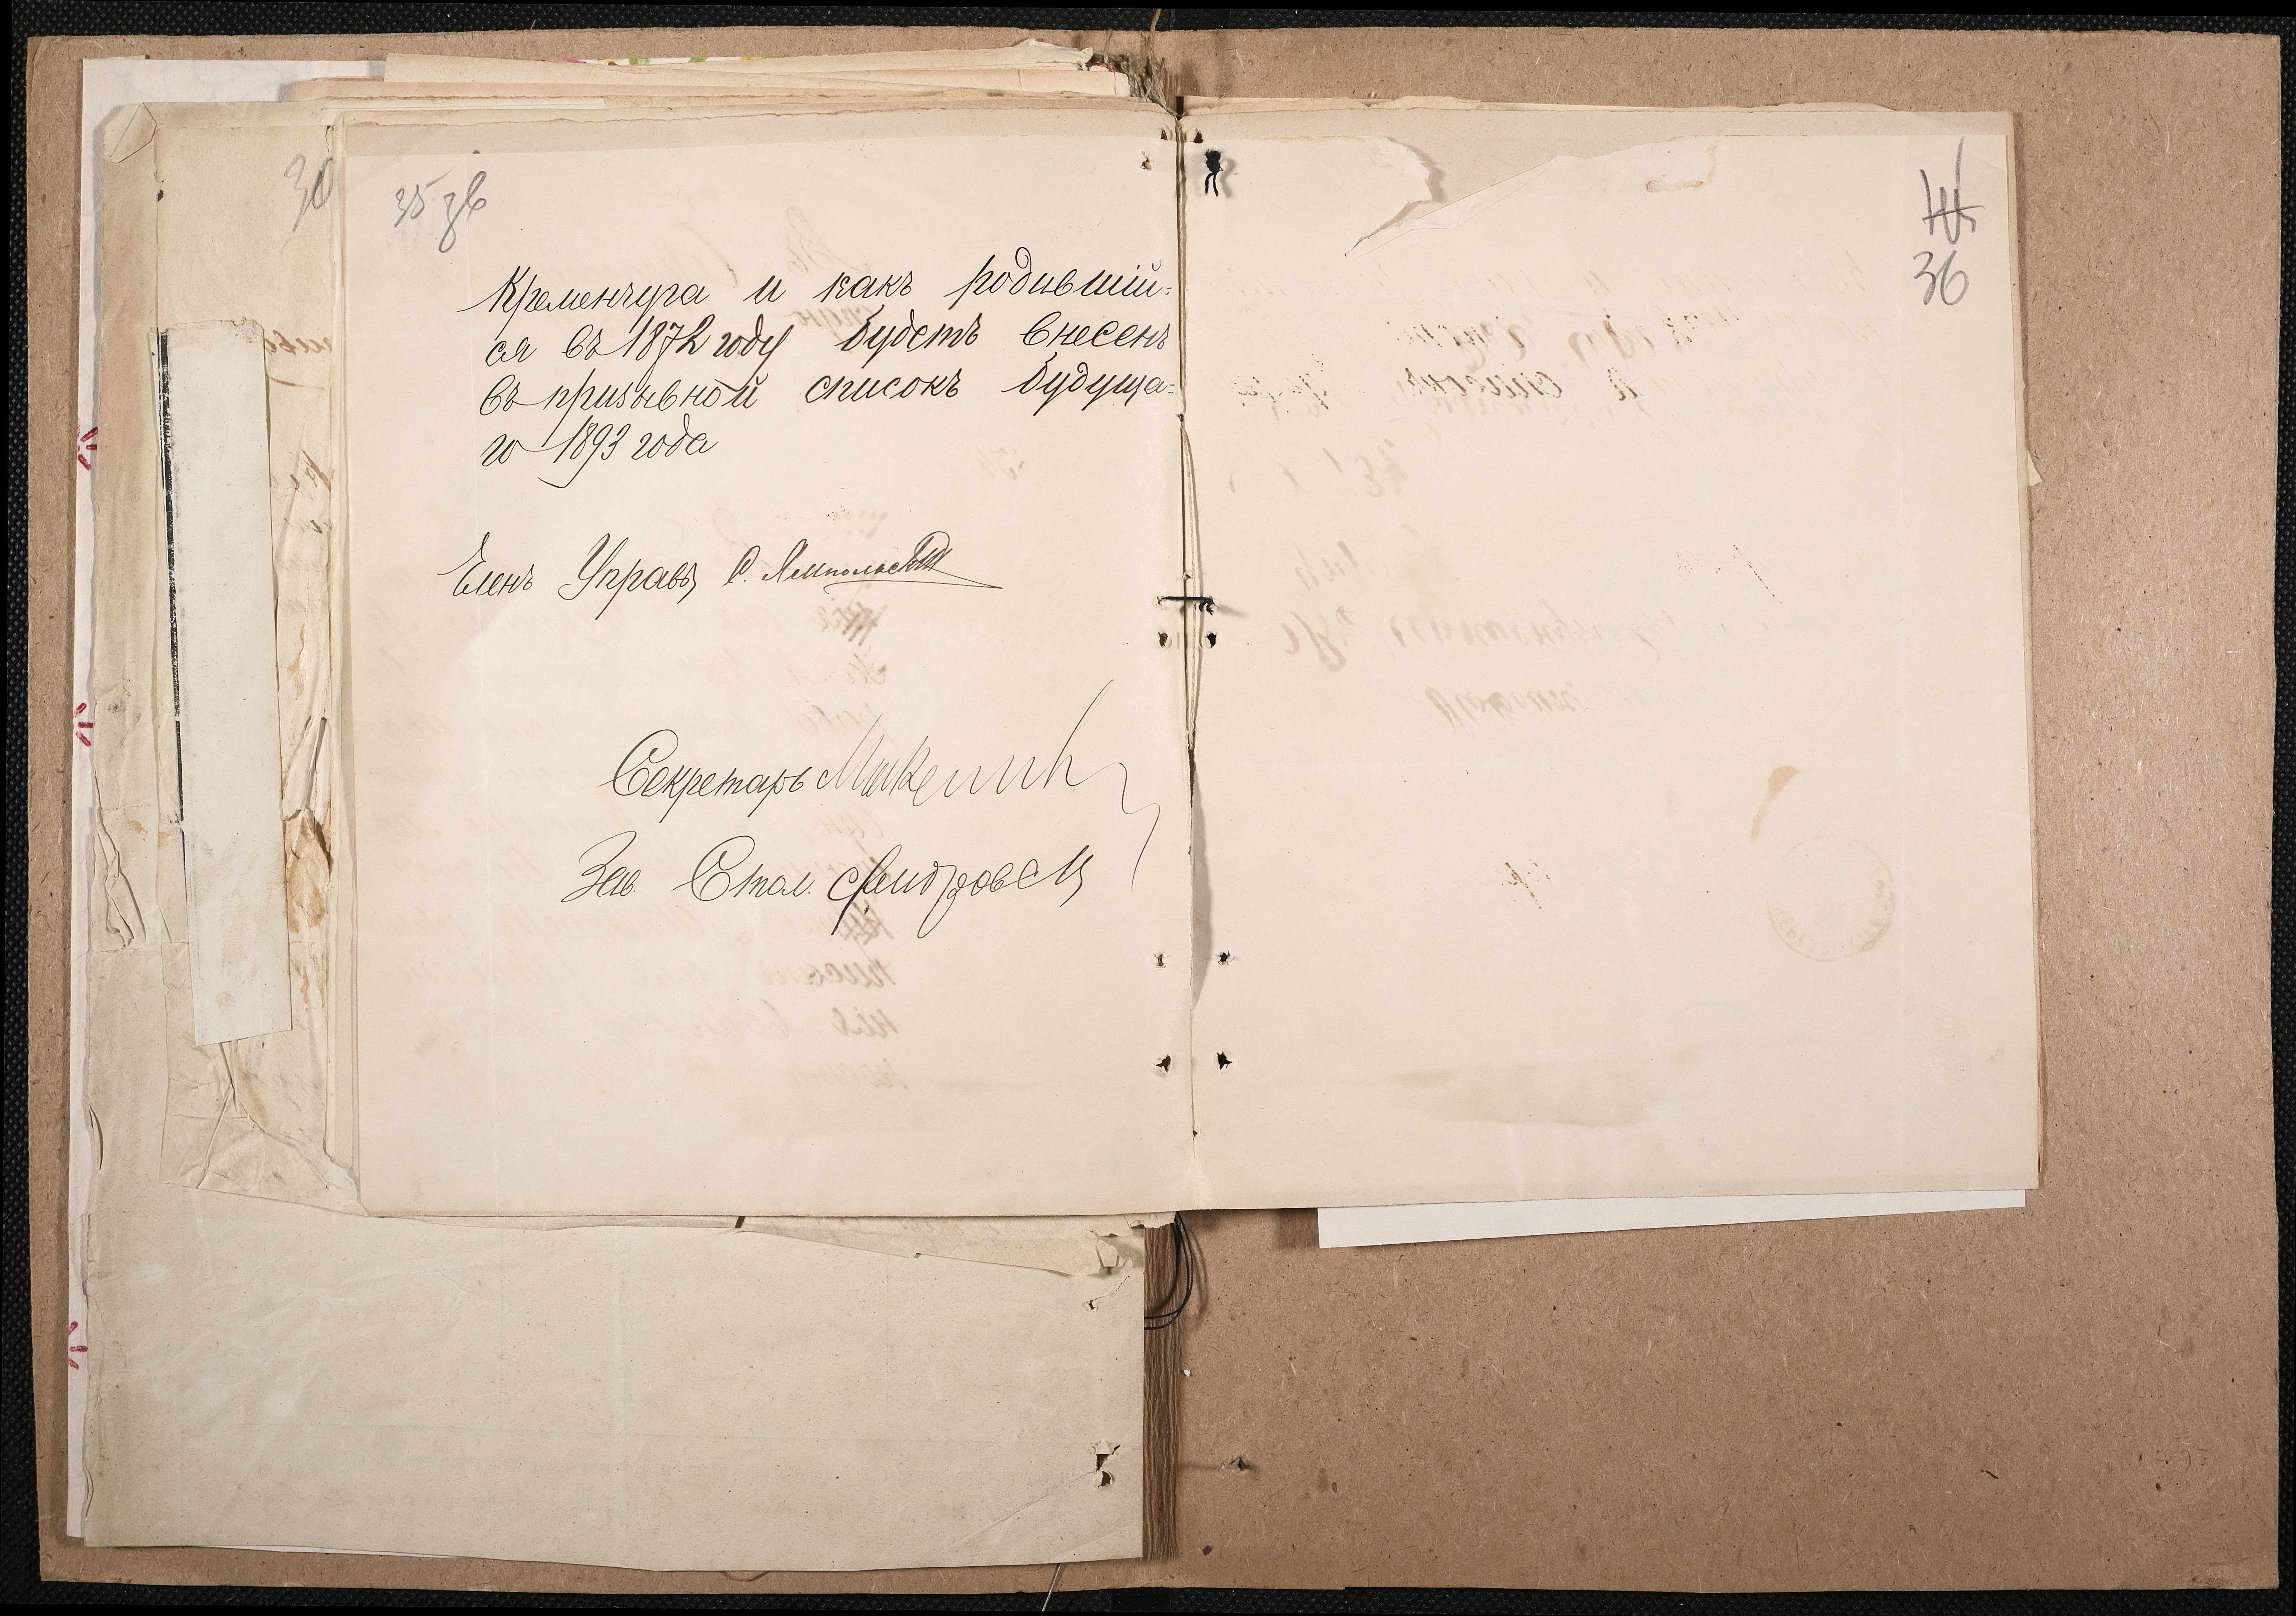 30
35 зв
Кременчуга и какъ родившій=
ся въ 1872 году будетъ внесенъ
въ призывной списокъ будуща=
го 1893 года
Членъ Управы С. Ямпольскій
Секретарь
Зав. Стол.
36